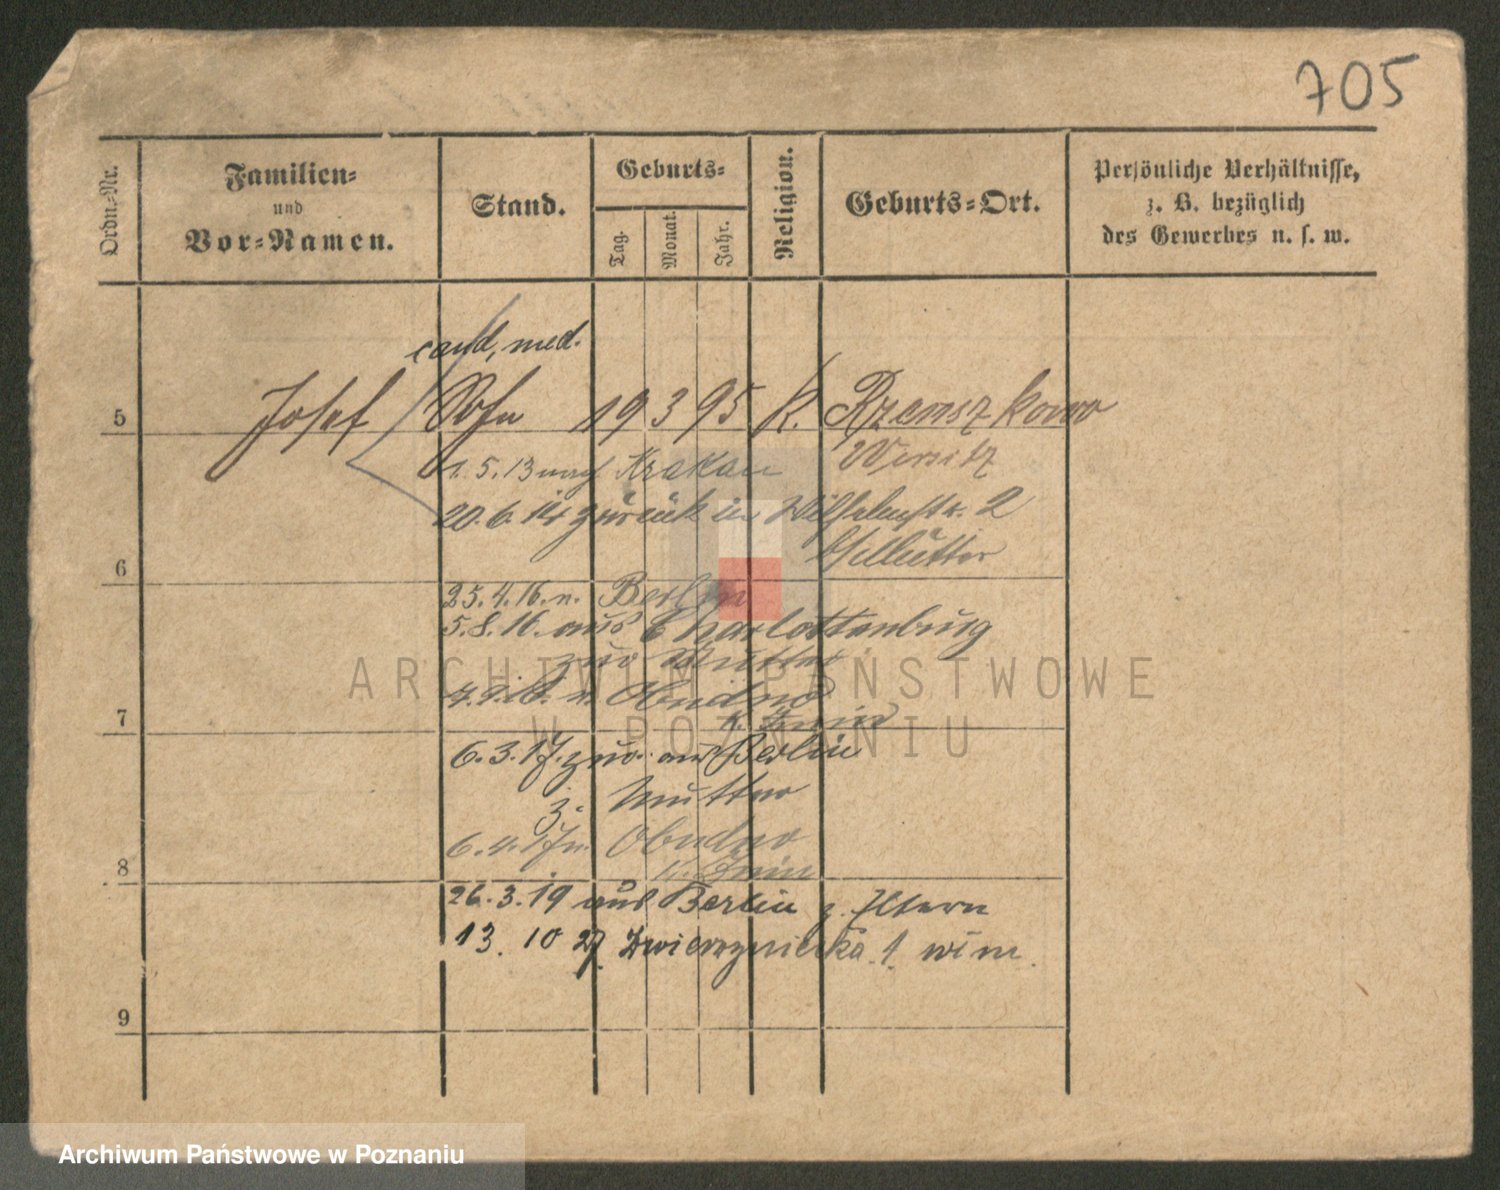 705
Ordn.-Nr.
Familien-
und
Vor-Namen.
Stand.
Geburts-
Tag.
Monat.
Jahr.
Religion.
Geburts-Ort.
Persönliche Verhältnisse,
z. B. bezüglich
des Gewerbes u. s. w.
cand. med.
5 Josef Sohn 19 3 95 K. Rzemszkowo
Wirsitz
1. 5. 13 nach Krakau
20. 6. 14 zurück in Wilhelmstr. 2
6
25. 4. 16. n. Berlin
5. 8. 16. aus Charlottenburg
zur Mutter
4. 9. 16. n. Obudno
7 K. Znin
6. 3. 17. zur. aus Berlin
z. Mutter
6. 4. 17 n. Obudno
8 K. Znin
26. 3. 19 aus Berlin z. Eltern
13. 10 27. Zwierzyniecka 1. wim.
9
ARCHIWUM PAŃSTWOWE
W POZNANIU
Archiwum Państwowe w Poznaniu